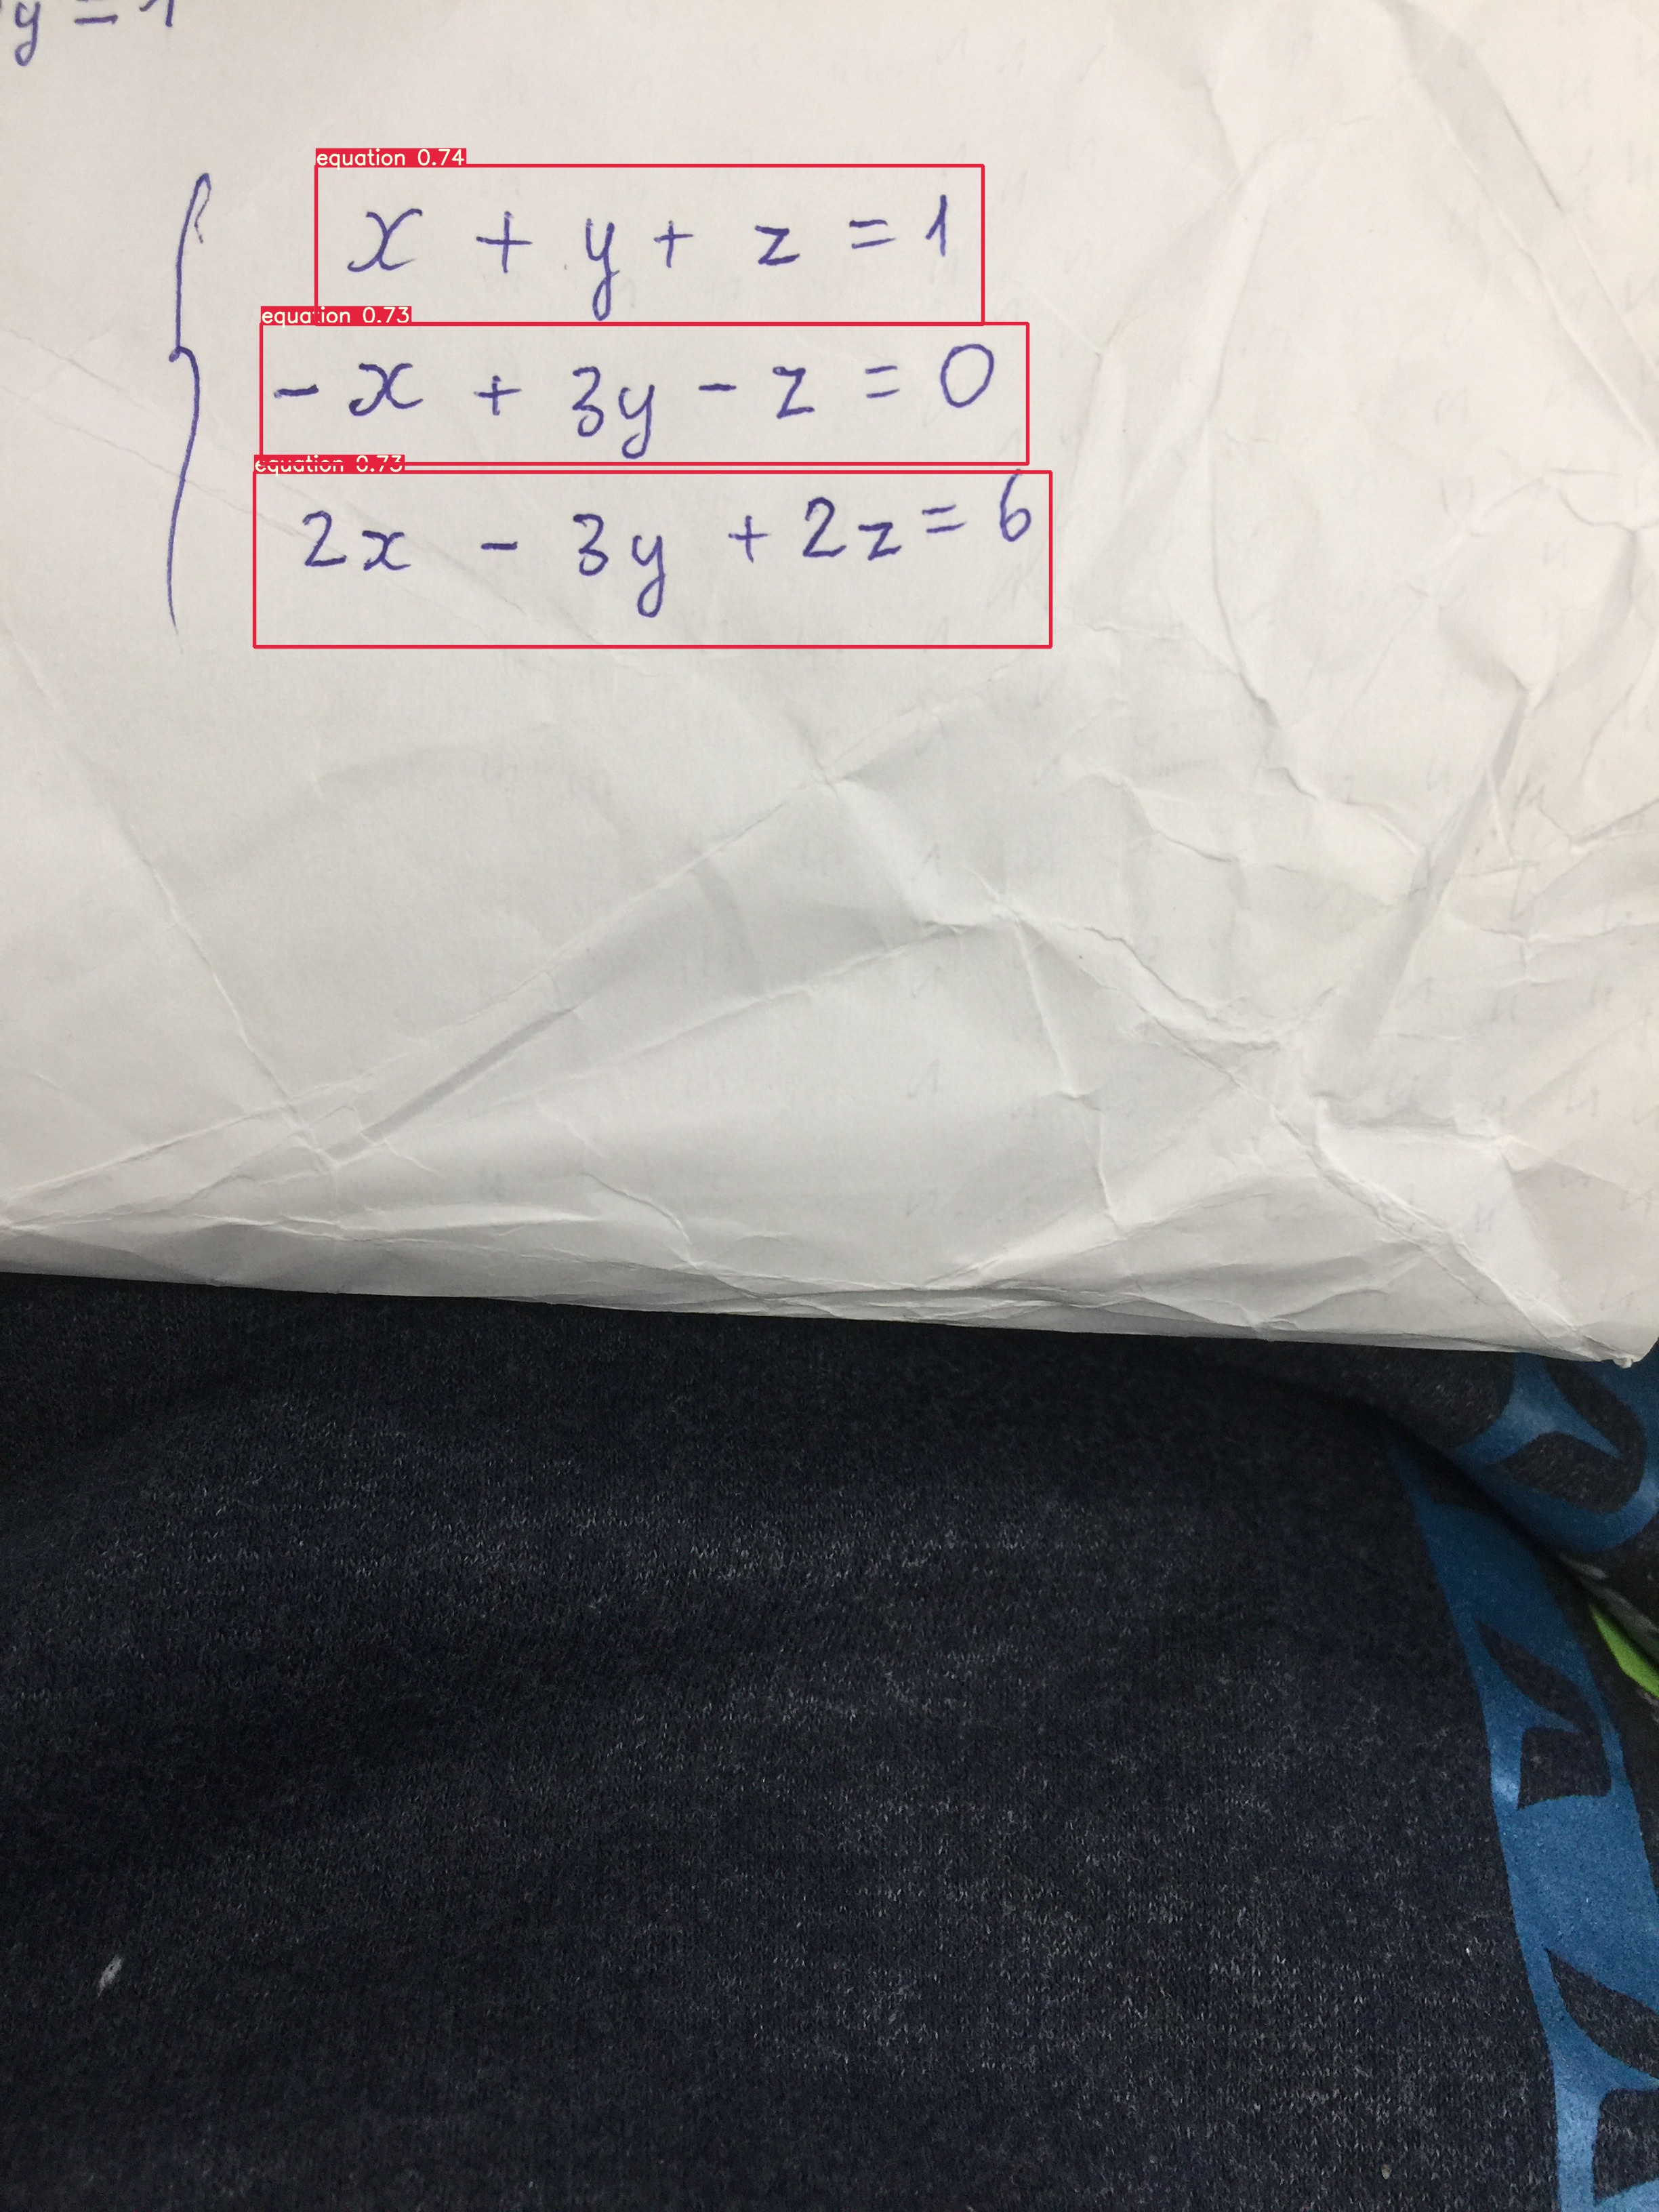 y = 1
equation 0.74
x + y + z = 1
equation 0.73
- x + 3y - z = 0
equation 0.73
2x - 3y + 2z = 6